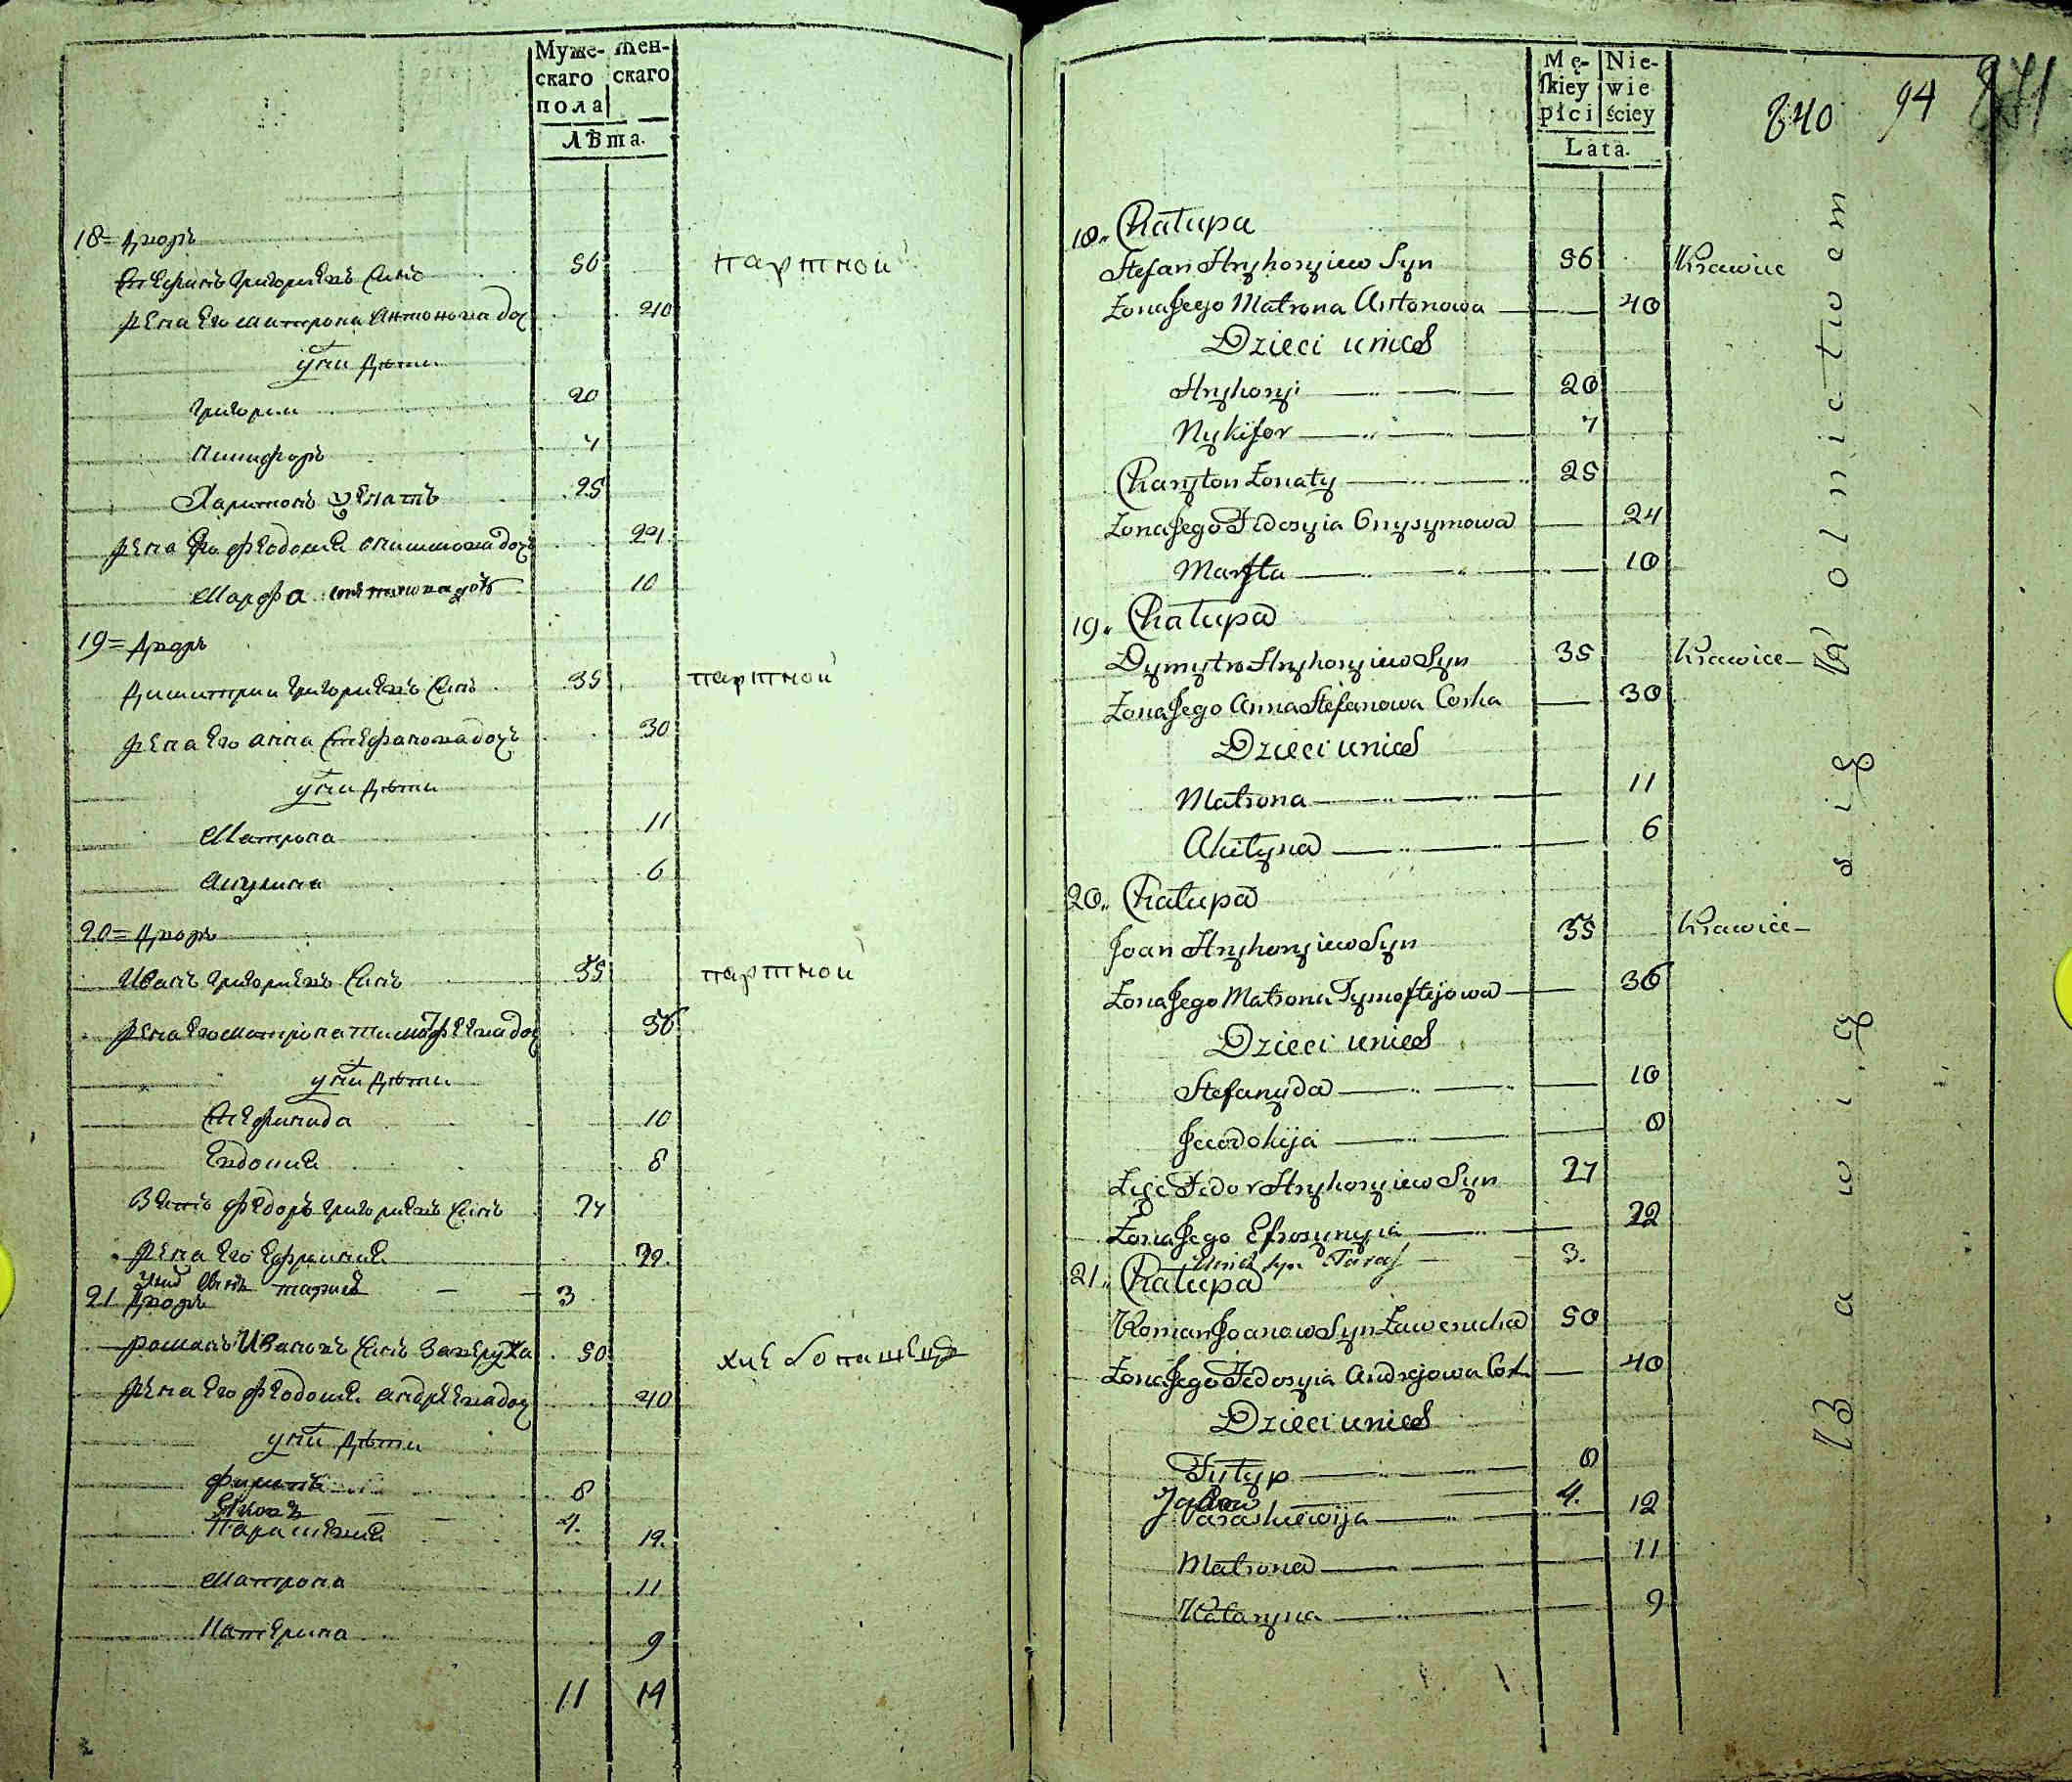 Муже- Жен-
скаго скаго
пола
Лѣта.
18 = Дворъ
Стефанъ Григориевъ Синъ 56 партной
Жена Его Матрона Антонова доч 40
у них Дѣти
Григории 20
Никифоръ 7
Харитонъ Женатъ 25
Жена Его Феодосия Онисимова дочъ 24
Марфа 10
19 = Дворъ
Димитрии Григориевъ Синъ 35 партной
Жена Его Анна Стефанова дочъ 30
у них Дѣти
Матрона 11
Акулина 6
20 = Дворъ
Иванъ Григориевъ Синъ 35 партной
Жена Его Матрона Тимофѣева доч 36
у них Дѣти
Стефанида 10
Евдокия 8
Зять Федоръ Григориевъ Синъ 27
Жена Его Ефросиния 22
3
21 Дворъ
Романъ Ивановъ Синъ Заверуха 50 хлебопашецъ
Жена Его Феодосия Андрѣева доч 40
у них Дѣти
Филипъ 8
Яковъ 4.
Параскевия 12.
Матрона 11
Катерина 9
11 14
Mę- Nie-
ſkiey wie
płci ściey
Lata.
840 94 841
18.. Chałupa
Stefan Hryhoryiew Syn 56 Krawiec
Żona Jego Matrona Antonowa 40
Dzieci u nich
Hryhoryi 20
Nykifor 7
Charyton Żonaty 25
Żona Jego Fedosyia Onysymowa 24
Marfta 10
19. Chałupa
Dymytro Hryhoryiew Syn 35 Krawiec
Żona Jego Anna Stefanowa Corka 30
Dzieci u nich
Matrona 11
Akilyna 6
20.. Chałupa
Joan Hryhoryiew Syn 35 Krawiec
Żona Jego Matrona Tymoftejowa 36
Dzieci u nich
Stefanyda 10
Jewdokija 8
Zięć Fedor Hryhoryiew Syn 27
Żona Jego Efrosynyia 22
u nich syn Taras 3.
21.. Chałupa
Roman Joanow Syn Zawerucha 50
Żona Jego Fedosyia Andrejowa Cor. 40
Dzieci u nich
Fylyp 8
Jakow 4.
Paraskiewija 12
Matrona 11
Kataryna 9
Bawią się Rolnictwem